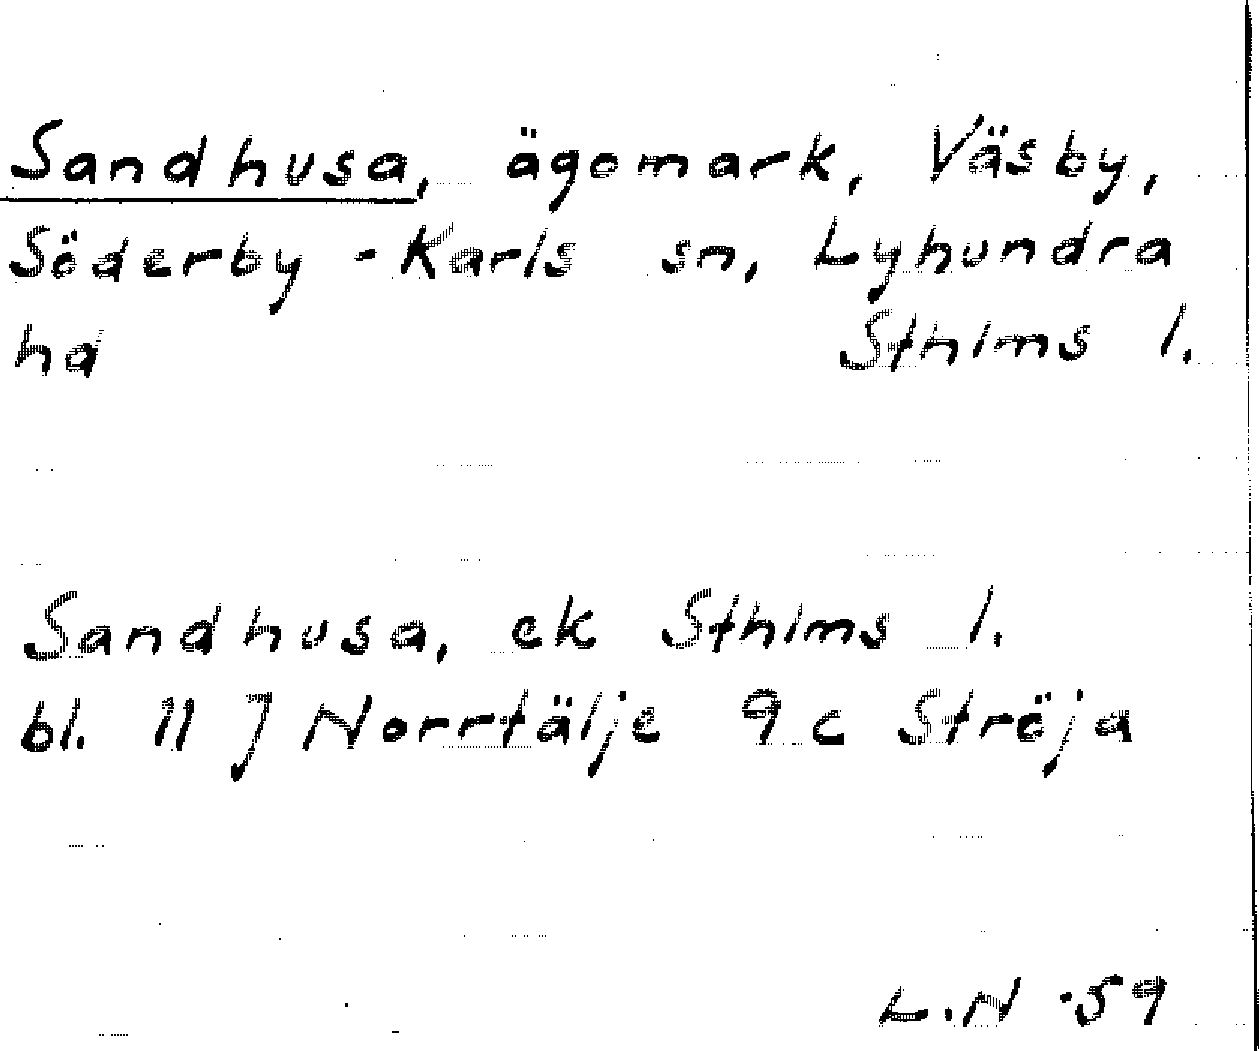 Sandhusa, ägomark, Väsby,
Söderby-Karls sn, Lyhundra
hd Sthlms l.
Sandhusa, ek Sthlms l.
bl. 11 J Norrtälje 9 c Ströja
L.N -59